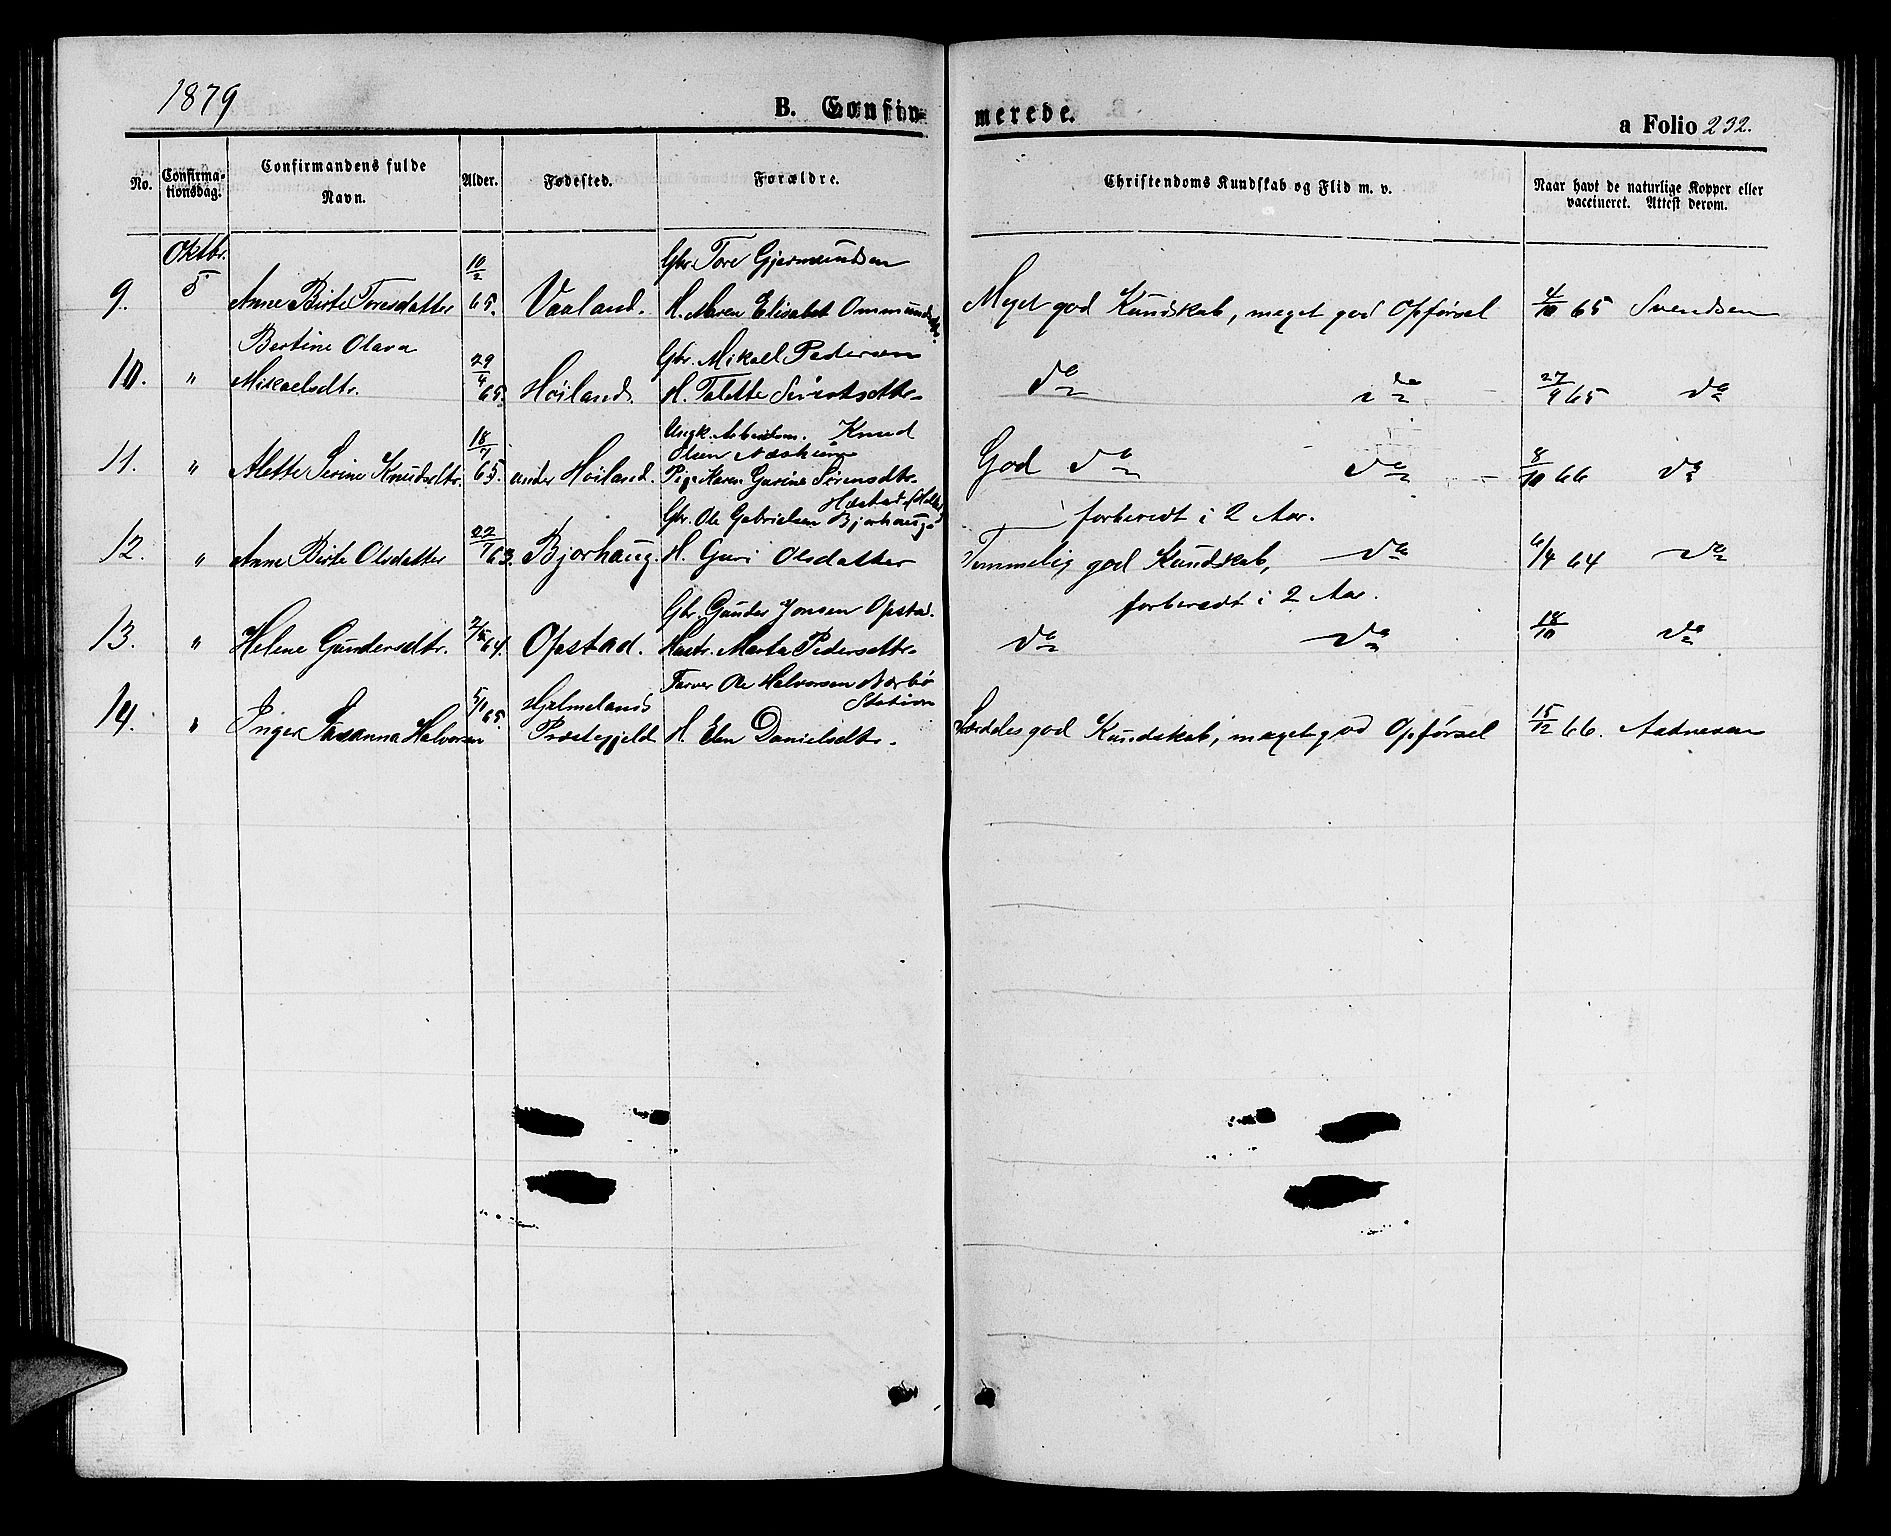 1879
B. Confir- merede.
a Folio 232.
No. Confirma- tionsdag. Confirmandens fulde Navn. Alder. Fødested. Forældre. Christendoms Kundskab og Flid m. v. Naar havt de naturlige Kopper eller vaccineret. Attest derom.
Oktbr. 10/2 Gbr. Tore Gjermundsen
9. 5 Anne Birte Toresdatter 65. Vaaland. H. Maren Elisabet Ommundsdtr. Meget god Kundskab, meget god Opførsel 4/10 65 Svendsen
Bertine Olava 29/4 Gbr. Mikael Pedersen
10. " Mikaelsdtr. 65. Høiland. H. Talette Sivertsdtr. do do 27/9 65 do
18/7 Ungk. Arbeidsm. Knud
Olsen
11. " Alette Serine Knudsdtr. 65. under Høiland. Pige Karen Gurine Sørensdtr. God do do 8/10 66 do
Gbr. Ole Gabrielsen Bjorhaug forberedt i 2 Aar.
12. " Anne Birte Olsdatter 22/1 63. Bjorhaug. H. Guri Olsdatter Temmelig god Kundskab, do 6/4 64 do
Gbr. Gunder Jonsen Opstad. forberedt i 2 Aar.
13. " Helene Gundersdtr. 2/5 64. Opstad. Hustr. Marta Pedersdtr. do do 18/10 do
5/1 Hjelmelands Farver Ole Halvorsen Nærbø
Station
14. " Inger Susanna Halvorsen 65. Præstegjeld H. Elen Danielsdtr. Særdeles god Kundskab, meget god Opførsel 15/12 66. Aadnesen